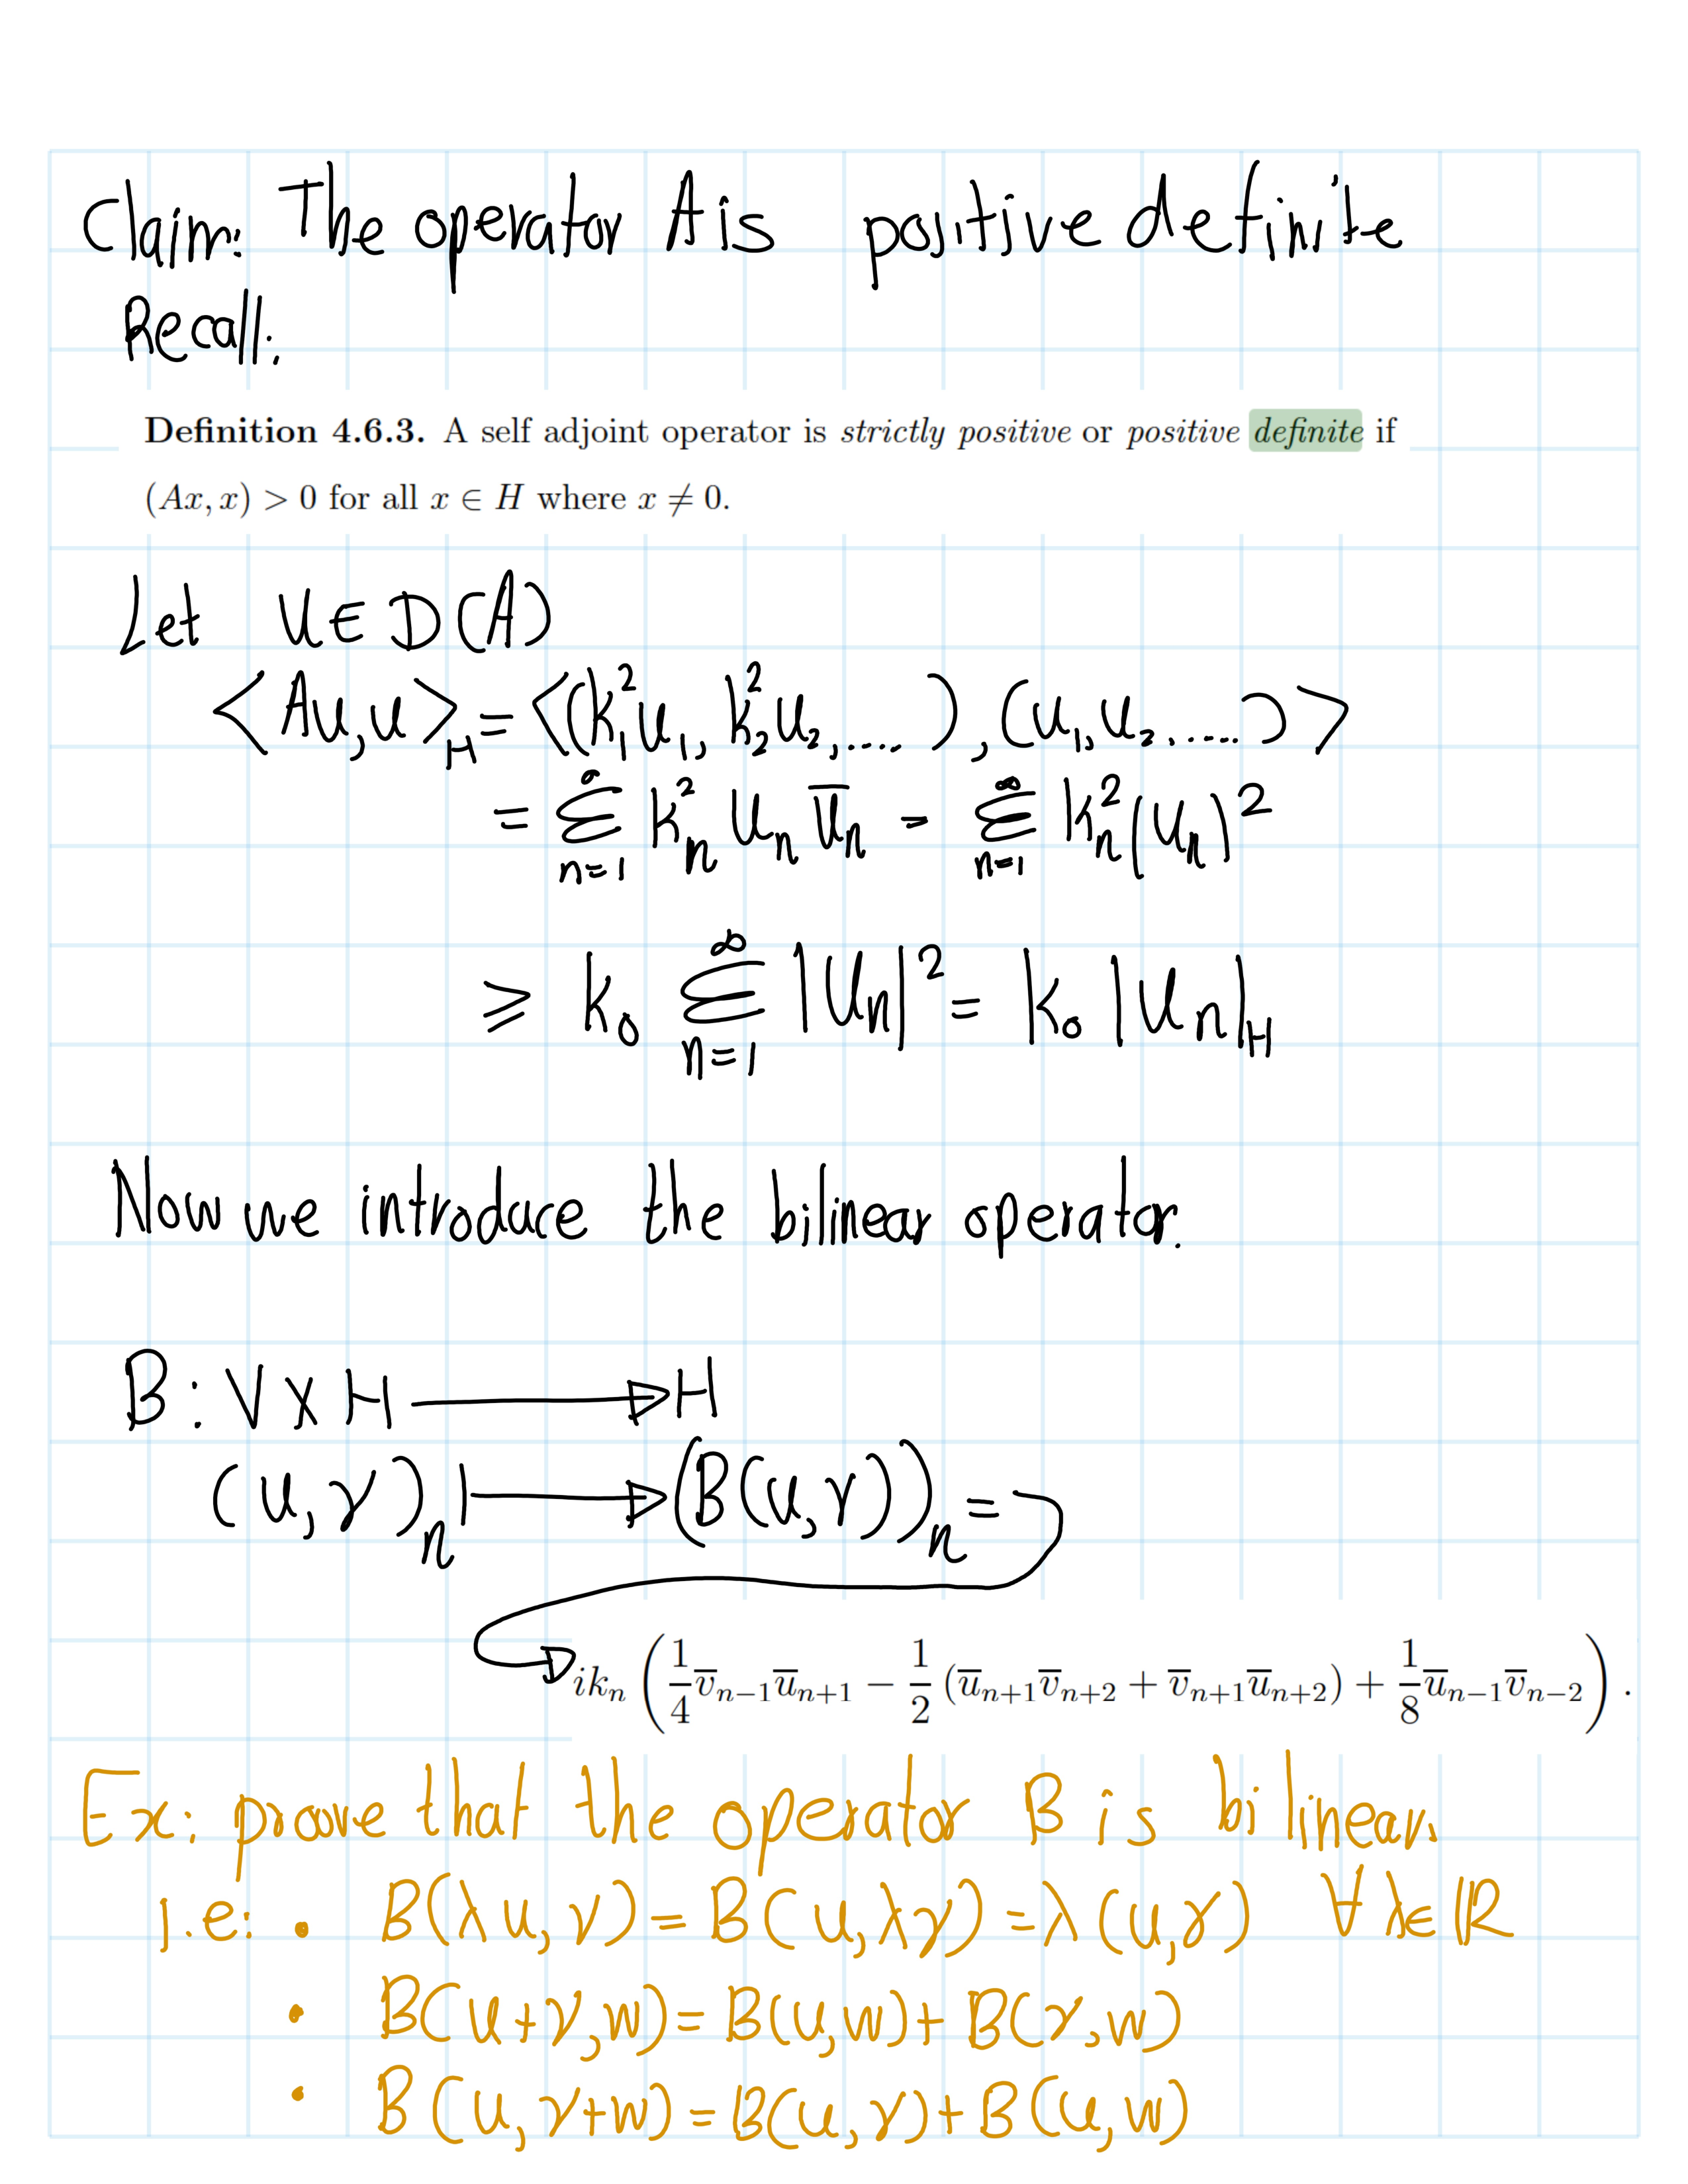 Claim: The operator A is positive definite
Recall:
Definition 4.6.3. A self adjoint operator is strictly positive or positive definite if
(Ax, x) > 0 for all x ∈ H where x ≠ 0.
Let u ∈ D(A)
<Au,u>_H = <(k_1^2 u_1, k_2^2 u_2, ....), (u_1, u_2, .....)>
= ∑_{n=1}^∞ k_n^2 u_n ū_n = ∑_{n=1}^∞ k_n^2 |u_n|^2
≥ k_0 ∑_{n=1}^∞ |u_n|^2 = k_0 |u_n|_H
Now we introduce the bilinear operator.
B : V x H → H
(u, v)_n ↦ (B(u,v))_n =
ik_n (1/4 v̄_{n−1}ū_{n+1} − 1/2 (ū_{n+1}v̄_{n+2} + v̄_{n+1}ū_{n+2}) + 1/8 ū_{n−1}v̄_{n−2}) .
Ex: prove that the operator B is bilinear.
i.e: • B(λu, v) = B(u, λv) = λ(u, v) ∀ λ ∈ ℝ
• B(u+v, w) = B(u,w) + B(v, w)
• B(u, v+w) = B(u,v) + B(u,w)